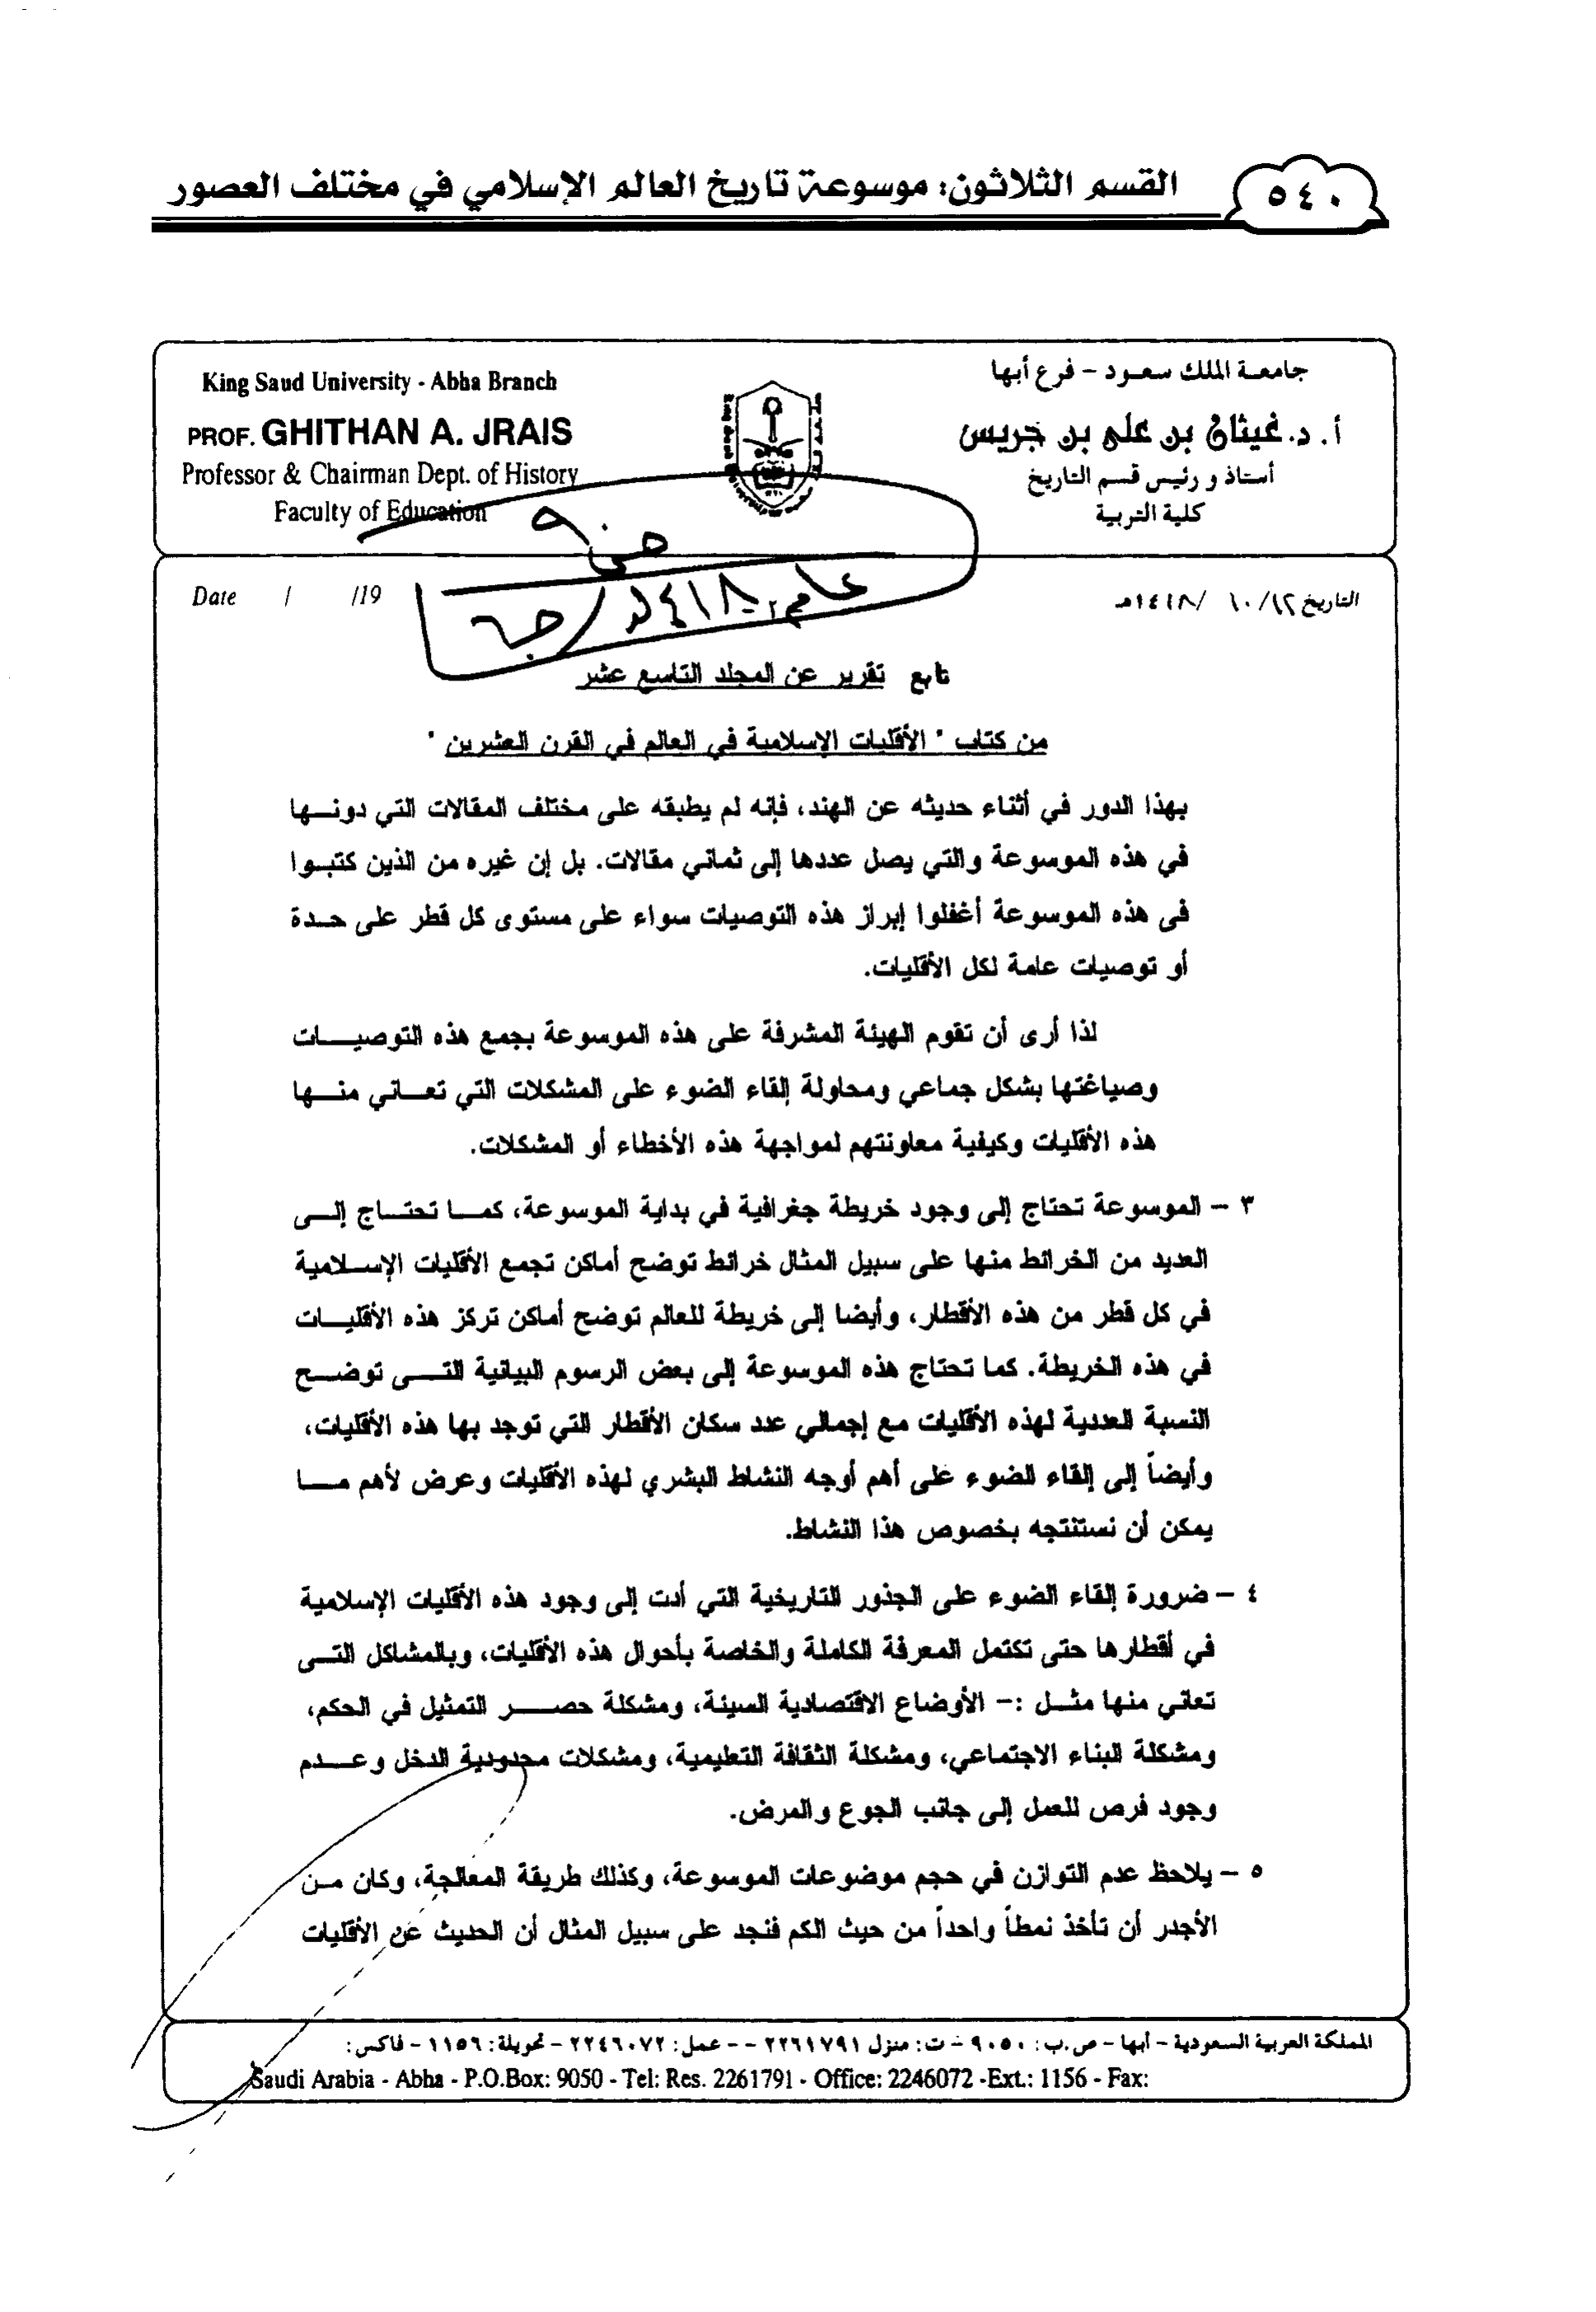 ٥٤٠
القسم الثلاثون: موسوعة تاريخ العالم الإسلامي في مختلف العصور
جامعة الملك سعود - فرع أبها
أ. د. غيثان بن علي بن جريس
أستاذ و رئيس قسم التاريخ
كلية التربية
King Saud University - Abha Branch
PROF. GHITHAN A. JRAIS
Professor & Chairman Dept. of History
Faculty of Education
التاريخ ١٢/ ١٠ /١٤١٨هـ
Date / /19
تابع تقرير عن المجلد التاسع عشر
من كتاب " الأقليات الإسلامية في العالم في القرن العشرين "
بهذا الدور في أثناء حديثه عن الهند، فإنه لم يطبقه على مختلف المقالات التي دونها
في هذه الموسوعة والتي يصل عددها إلى ثماني مقالات. بل إن غيره من الذين كتبوا
فى هذه الموسوعة أغفلوا إبراز هذه التوصيات سواء على مستوى كل قطر على حدة
أو توصيات عامة لكل الأقليات.
لذا أرى أن تقوم الهيئة المشرفة على هذه الموسوعة بجمع هذه التوصيات
وصياغتها بشكل جماعي ومحاولة إلقاء الضوء على المشكلات التي تعاني منها
هذه الأقليات وكيفية معاونتهم لمواجهة هذه الأخطاء أو المشكلات.
٣ - الموسوعة تحتاج إلى وجود خريطة جغرافية في بداية الموسوعة، كما تحتاج إلى
العديد من الخرائط منها على سبيل المثال خرائط توضح أماكن تجمع الأقليات الإسلامية
في كل قطر من هذه الأقطار، وأيضا إلى خريطة للعالم توضح أماكن تركز هذه الأقليات
في هذه الخريطة. كما تحتاج هذه الموسوعة إلى بعض الرسوم البيانية التى توضح
النسبة العددية لهذه الأقليات مع إجمالي عدد سكان الأقطار التي توجد بها هذه الأقليات،
وأيضاً إلى إلقاء الضوء على أهم أوجه النشاط البشري لهذه الأقليات وعرض لأهم ما
يمكن أن نستنتجه بخصوص هذا النشاط.
٤ - ضرورة إلقاء الضوء على الجذور التاريخية التي أدت إلى وجود هذه الأقليات الإسلامية
في أقطارها حتى تكتمل المعرفة الكاملة والخاصة بأحوال هذه الأقليات، وبالمشاكل التى
تعانى منها مثل :- الأوضاع الاقتصادية السيئة، ومشكلة حصر التمثيل في الحكم،
ومشكلة البناء الاجتماعي، ومشكلة الثقافة التعليمية، ومشكلات محدودية الدخل وعدم
وجود فرص للعمل إلى جانب الجوع والمرض.
٥ - يلاحظ عدم التوازن في حجم موضوعات الموسوعة، وكذلك طريقة المعالجة، وكان من
الأجدر أن تأخذ نمطاً واحداً من حيث الكم فنجد على سبيل المثال أن الحديث عن الأقليات
المملكة العربية السعودية - أبها - ص.ب: ٩٠٥٠ - ت: منزل ٢٢٦١٧٩١ -- عمل: ٢٢٤٦٠٧٢ - تحويلة: ١١٥٦ - فاكس:
Saudi Arabia - Abha - P.O.Box: 9050 - Tel: Res. 2261791 - Office: 2246072 -Ext.: 1156 - Fax: